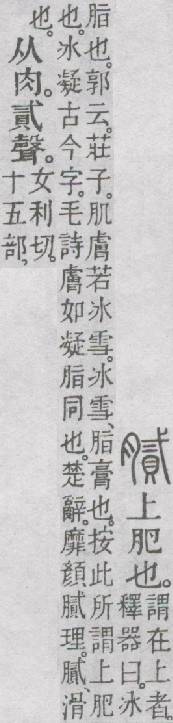 膩上肥也。
謂在上者。
釋器曰。冰
脂也。郭云。莊子。肌膚若冰雪。冰雪、脂膏也。按此所謂上肥
也。冰凝古今字。毛詩膚如凝脂同也。楚辭。靡顏膩理。膩、滑
也。
从肉。貳聲。
女利切。
十五部、